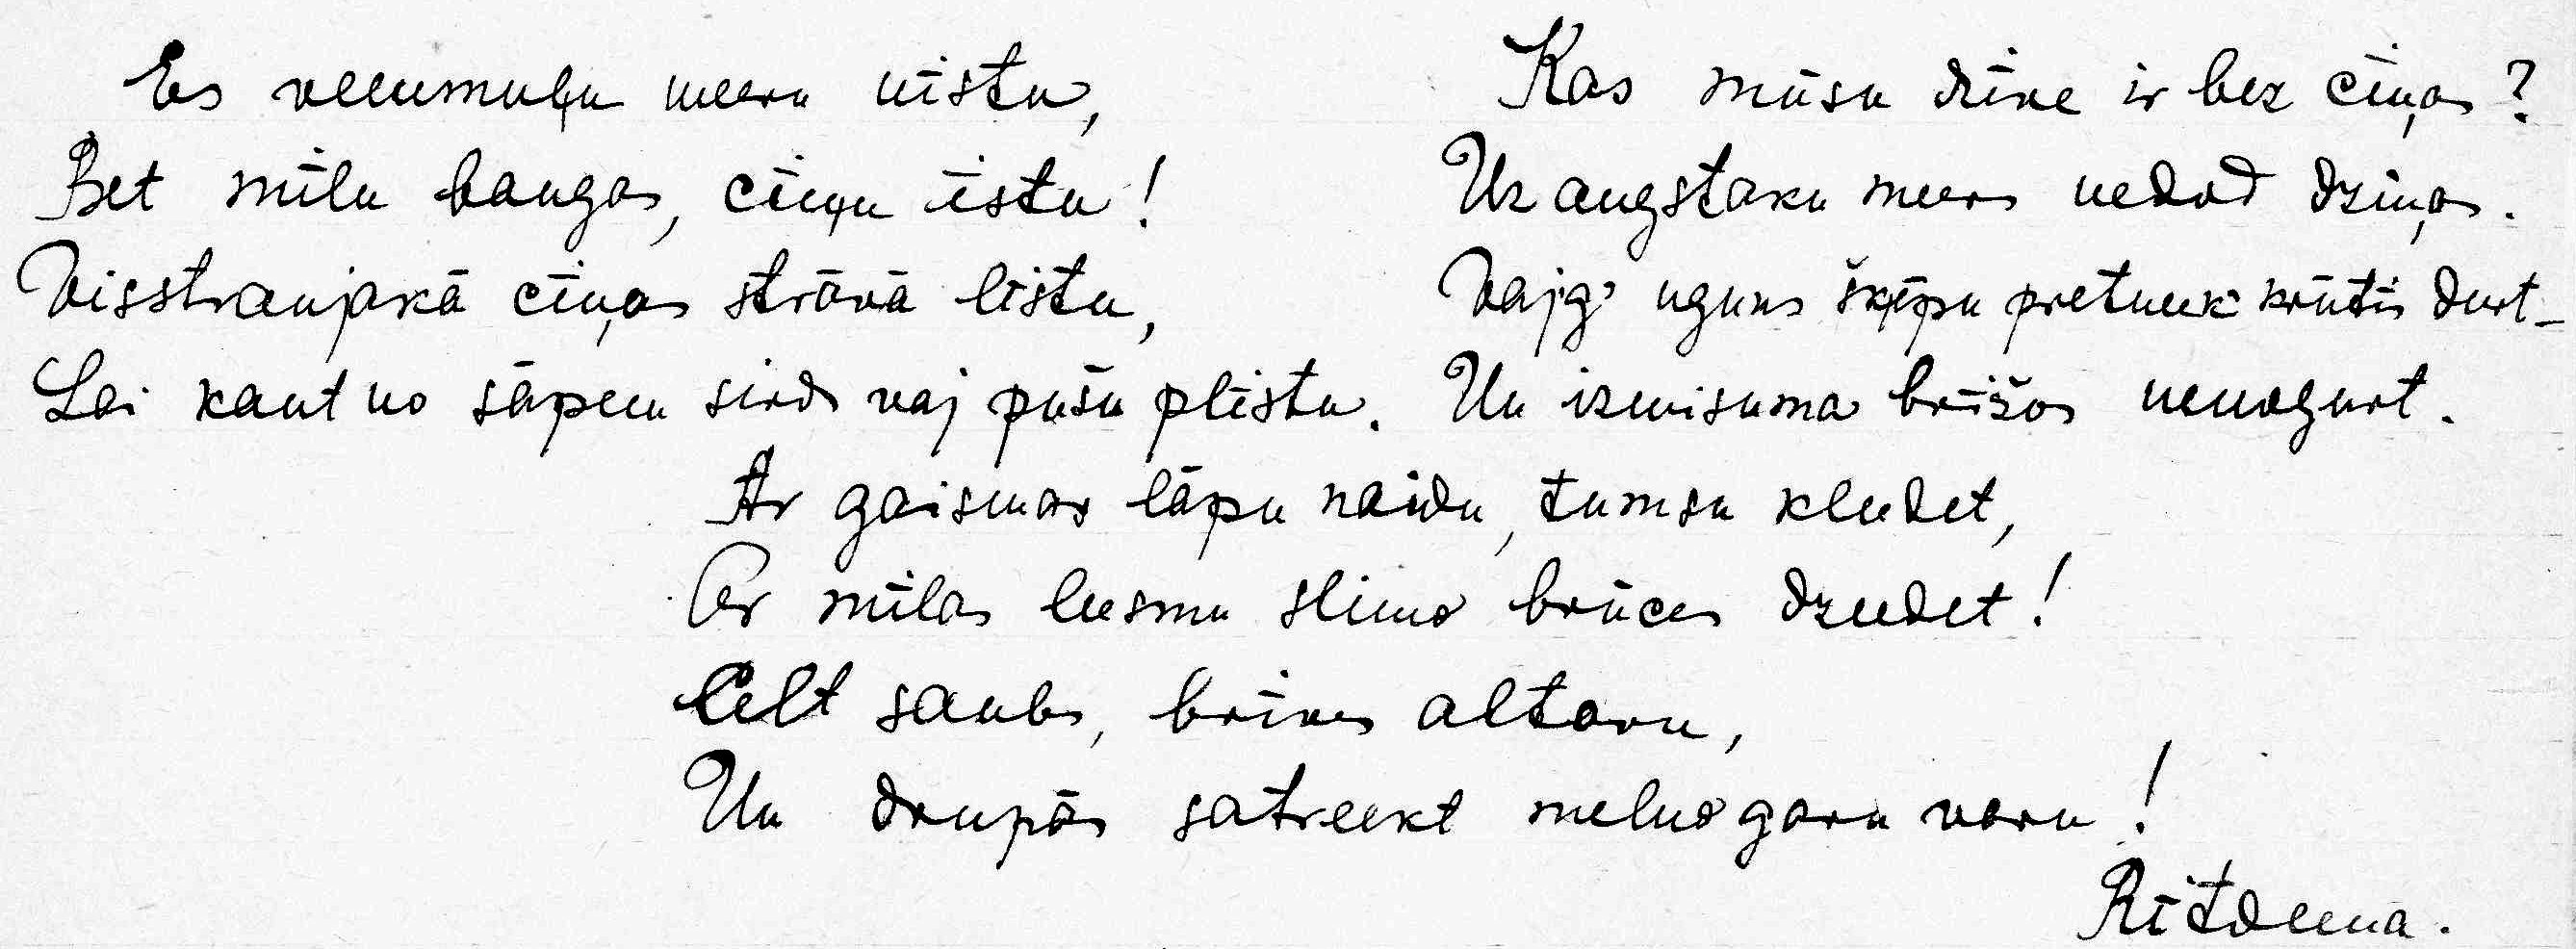 Es veenmuļu meeru nīstu,
Bet mīlu bangas, cīņu īstu!
Visstraujakā cīņas strāvā līstu,
Lai kaut no sāpem sirds vaj pušu plīstu.
Kas mūsu dzīve ir bez cīņas?
Uz augstaku meers nedod dziņas.
Vajg' uguns šķēpu pretneek' krūtīs durt_
Un izmisuma brīžos nenogurt.
Ar gaismas lāpu naidu, tumsu kleedet,
Ar mīlas leesmu slimo brūces dzeedet!
Celt saules, brīves altaru,
Un drupās satreekt melno garu varu!
Rītdeena.